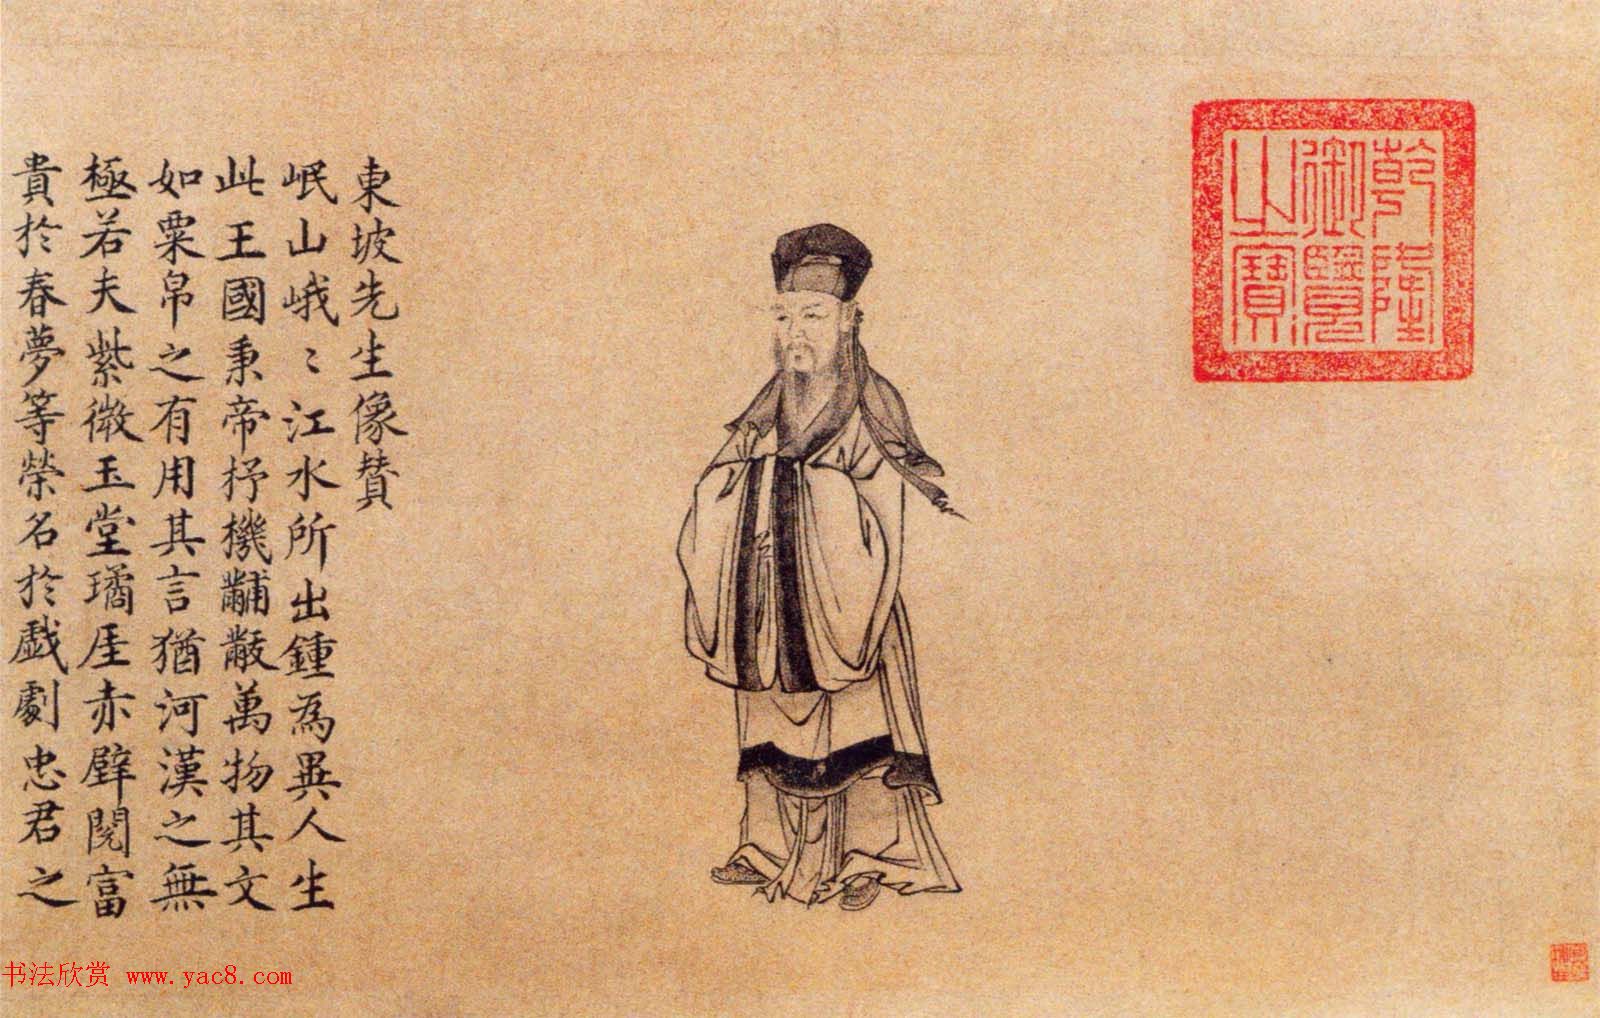 乾隆
御覽
之寶
東坡先生像賛
岷山峨〻江水所出鍾為異人生
此王國秉帝杼機黼黻萬物其文
如粟帛之有用其言猶河漢之無
極若夫紫微玉堂璚厓赤壁閱富
貴於春夢等榮名於戯劇忠君之
书法欣赏 www.yac8.com